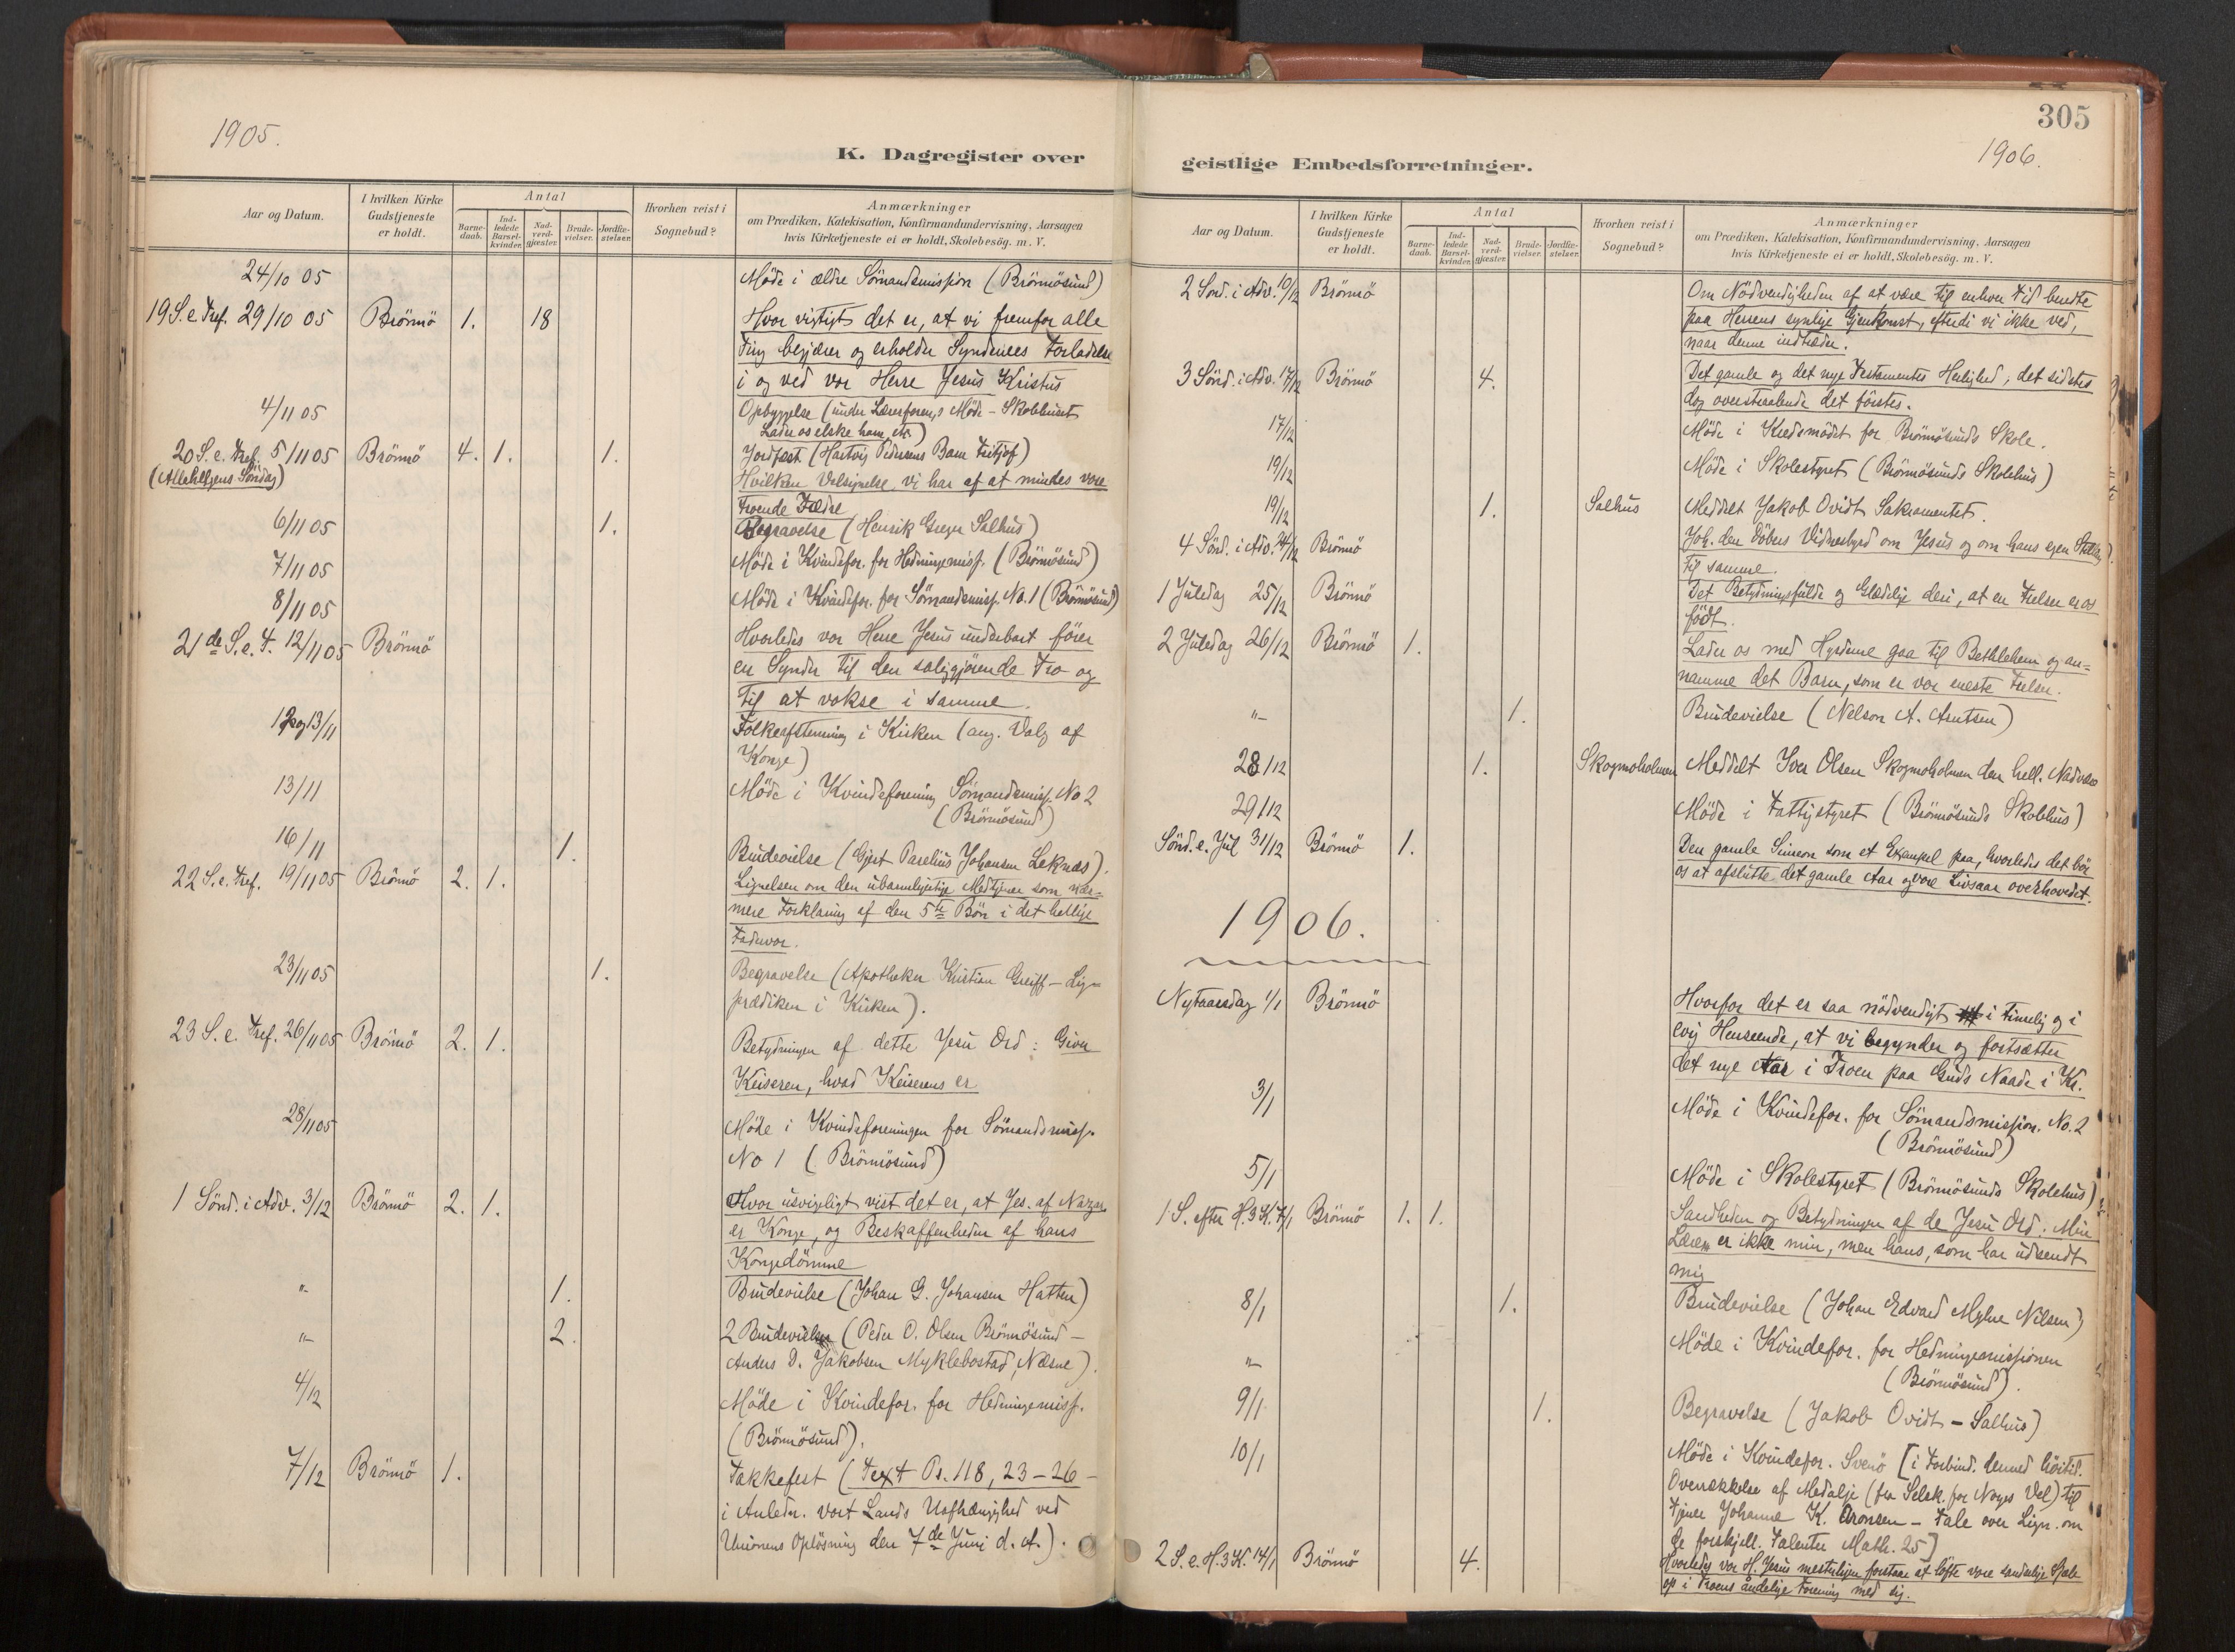 1905.
K. Dagregister over
Aar og Datum.
I hvilken Kirke Gudstjeneste er holdt.
Antal
Barne-daab.
Ind-ledede Barsel-kvinder.
Nad-verd-gjæster.
Brude-vielser.
Jordfæ-stelser.
Hvorhen reist i Sognebud?
Anmærkninger
om Prædiken, Katekisation, Konfirmandundervisning, Aarsagen
hvis Kirketjeneste ei er holdt, Skolebesög. m. V.
24/10 05 Möde i ældre Sömandsmission (Brönnösund)
19 S. e Tref. 29/10 05 Brönnö 1. 18 Hvor vigtigt det er, at vi fremfor alle
Ting begjærer og erholder Syndernes Forladelse
i og ved vor Herre Jesus Kristus
4/11 05 Opbyggelse (under Lærerforen.s Möde - Skolehuset
Lader os elske ham, etc.)
20 S. e. Tref. 5/11 05 Brönnö 4. 1. 1. Jordfæst (Hartvig Pedersens Barn Fritjof)
(Allehelgens Söndag) Hvilken Velsignelse vi har af at mindes vore
troende Fædre
6/11 05 1. Begravelse (Henrik Greger Salhus)
7/11 05 Möde i Kvindefor. for Hedningemiss. (Brönnösund)
8/11 05 Möde i Kvindefor. for Sömandsmiss. No. 1 (Brönnösund)
21de S. e. T. 12/11 05 Brönnö Hvorledes vor Herre Jesus underbart förer
en Synder til den saliggjörende Tro og
til at vokse i samme.
12 og 13/11 Folkeafstemning i Kirken (ang. Valg af
Konge)
13/11 Möde i Kvindeforening Sömandsmiss. No 2
(Brönnösund)
16/11 1. Brudevielse (Gjert Parelius Johansen Leknæs).
22 S. e. Tref. 19/11 05 Brönnö 2. 1. Lignelsen om den ubarmhjertige Medtjener som nær=
mere Forklaring af den 5te Bön i det hellige
Fadervor.
23/11 05 1. Begravelse (Apotheker Kristian Greiff - Lig=
prædiken i Kirken).
23 S. e. Tref. 26/11 05 Brönnö 2. 1. Betydningen af dette Jesu Ord: Giver
Keiseren, hvad Keiserens er
28/11 05 Möde i Kvindeforeningen for Sömandsmiss.
No 1 (Brönnösund)
1 Sönd. i Adv. 3/12 Brönnö 2. 1. Hvor usvigeligt vist det er, at Jes. af Nazar.
er Konge, og Beskaffenheden af hans
Kongedömme
"- 1. Brudevielse (Johan G. Johansen Hatten)
"- 2. 2 Brudevielser (Peder O. Olsen Brönnösund -
Anders D. Jakobsen Myklebostad, Nesne).
4/12 Möde i Kvindefor. for Hedningemiss.
(Brönnösund).
7/12 Brönnö 1. Takkefest (Text Ps. 118, 23-26 -
i Anledn. vort Lands Uafhængighed ved
Unionens Oplösning den 7de Juni d. A.).
305
1906.
geistlige Embedsforretninger.
Aar og Datum.
I hvilken Kirke Gudstjeneste er holdt.
Antal
Barne-daab.
Ind-ledede Barsel-kvinder.
Nad-verd-gjæster.
Brude-vielser.
Jordfæ-stelser.
Hvorhen reist i Sognebud?
Anmærkninger
om Prædiken, Katekisation, Konfirmandundervisning, Aarsagen
hvis Kirketjeneste ei er holdt, Skolebesög. m. V.
2 Sönd. i Adv. 10/12 Brönnö Om Nödvendigheden af at være til enhver Tid beredte
paa Herrens synlige Gjenkomst, efterdi vi ikke ved,
naar denne indtræder.
3 Sönd. i Adv. 17/12 Brönnö 4. Det gamle og det nye Testamentes Herlighed, det sidstes
dog overstraalende det förstes.
17/12 Möde i Kredsmödet for Brönnösunds Skole.
19/12 Möde i Skolestyret (Brönnösunds Skolehus)
19/12 1. Salhus Meddelt Jakob Ovidt Sakramentet.
4 Sönd. i Adv. 24/12 Brönnö Joh. den Döbers Vidnesbyrd om Jesus og om hans egen Stilling
til samme.
1 Juledag 25/12 Brönnö Det Betydningsfulde og Glædelige deri, at en Frelser er os
födt.
2 Juledag 26/12 Brönnö 1. Lader os med Hyrderne gaa til Bethlehem og an=
namme det Barn, som er vor eneste Frelser.
"- 1. Brudevielse (Nelson A. Arntsen)
28/12 1. Skogmoholmen Meddelt Iver Olsen Skogmoholmen den hell. Nadvere
29/12 Möde i Fattigstyret (Brönnösunds Skolehus)
Sönd. e. Jul 31/12 Brönnö 1. Den gamle Simeon som et Exempel paa, hvorledes det bör
os at afslutte det gamle Aar og vore Livsaar overhovedet.
1906.
Nytaarsdag 1/1 Brönnö Hvorfor det er saa nödvendigt i timelig og i
evig Henseende, at vi begynder og fortsætter
det nye Aar i Troen paa Guds Naade i Kr.
3/1 Möde i Kvindefor. for Sömandsmission. No. 2
(Brönnösund)
5/1 Möde i Skolestyret (Brönnösunds Skolehus)
1 S. efter H. 3 K. 7/1 Brönnö 1. 1. Sandheden og Betydningen af de Jesu Ord: Min
Lære er ikke min, men hans, som har udsendt
mig
8/1 1. Brudevielse (Johan Edvard Myhre Nilsen)
"- Möde i Kvindefor. for Hedningemissionen
(Brönnösund).
9/1 1. Begravelse (Jakob Ovidt - Salhus)
10/1 Möde i Kvindefor. Svenö [i Forbind. dermed höitid.
Overrækkelse af Medalje (fra Selsk. for Norges Vel) til
Tjener Johanne K. Aronsen - Tale over Lign. om
de forskjell. Talenter Math. 25]
2 S. e. H. 3 K. 14/1 Brönnö 4. Hvorledes vor H. Jesus mesterligen forstaar at löfte vore sandselige Sjæle
op i Troens åndelige Forening med sig.